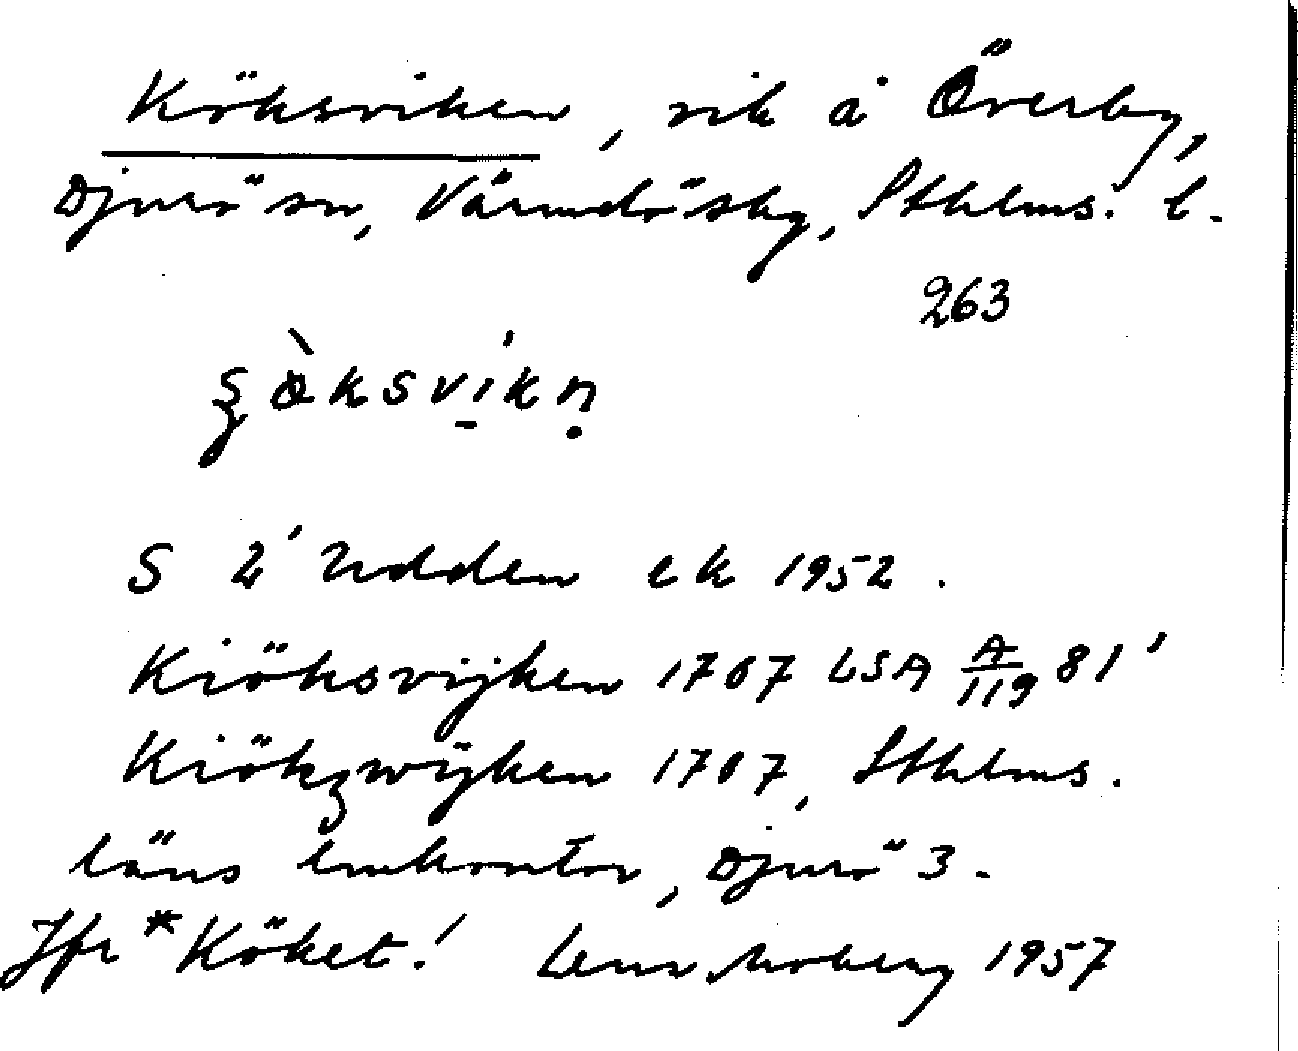 Köksviken, vik å Överby,
Djurö sn, Värmdö skg, Sthlms. l.
263
S Udden ek 1952.
Kiöksvijken 1707 LSA A/119 81'
Kiökzwijken 1707, Sthlms.
läns lmkontor, Djurö 3.
Jfr *Köket! Lenn. Moberg 1957